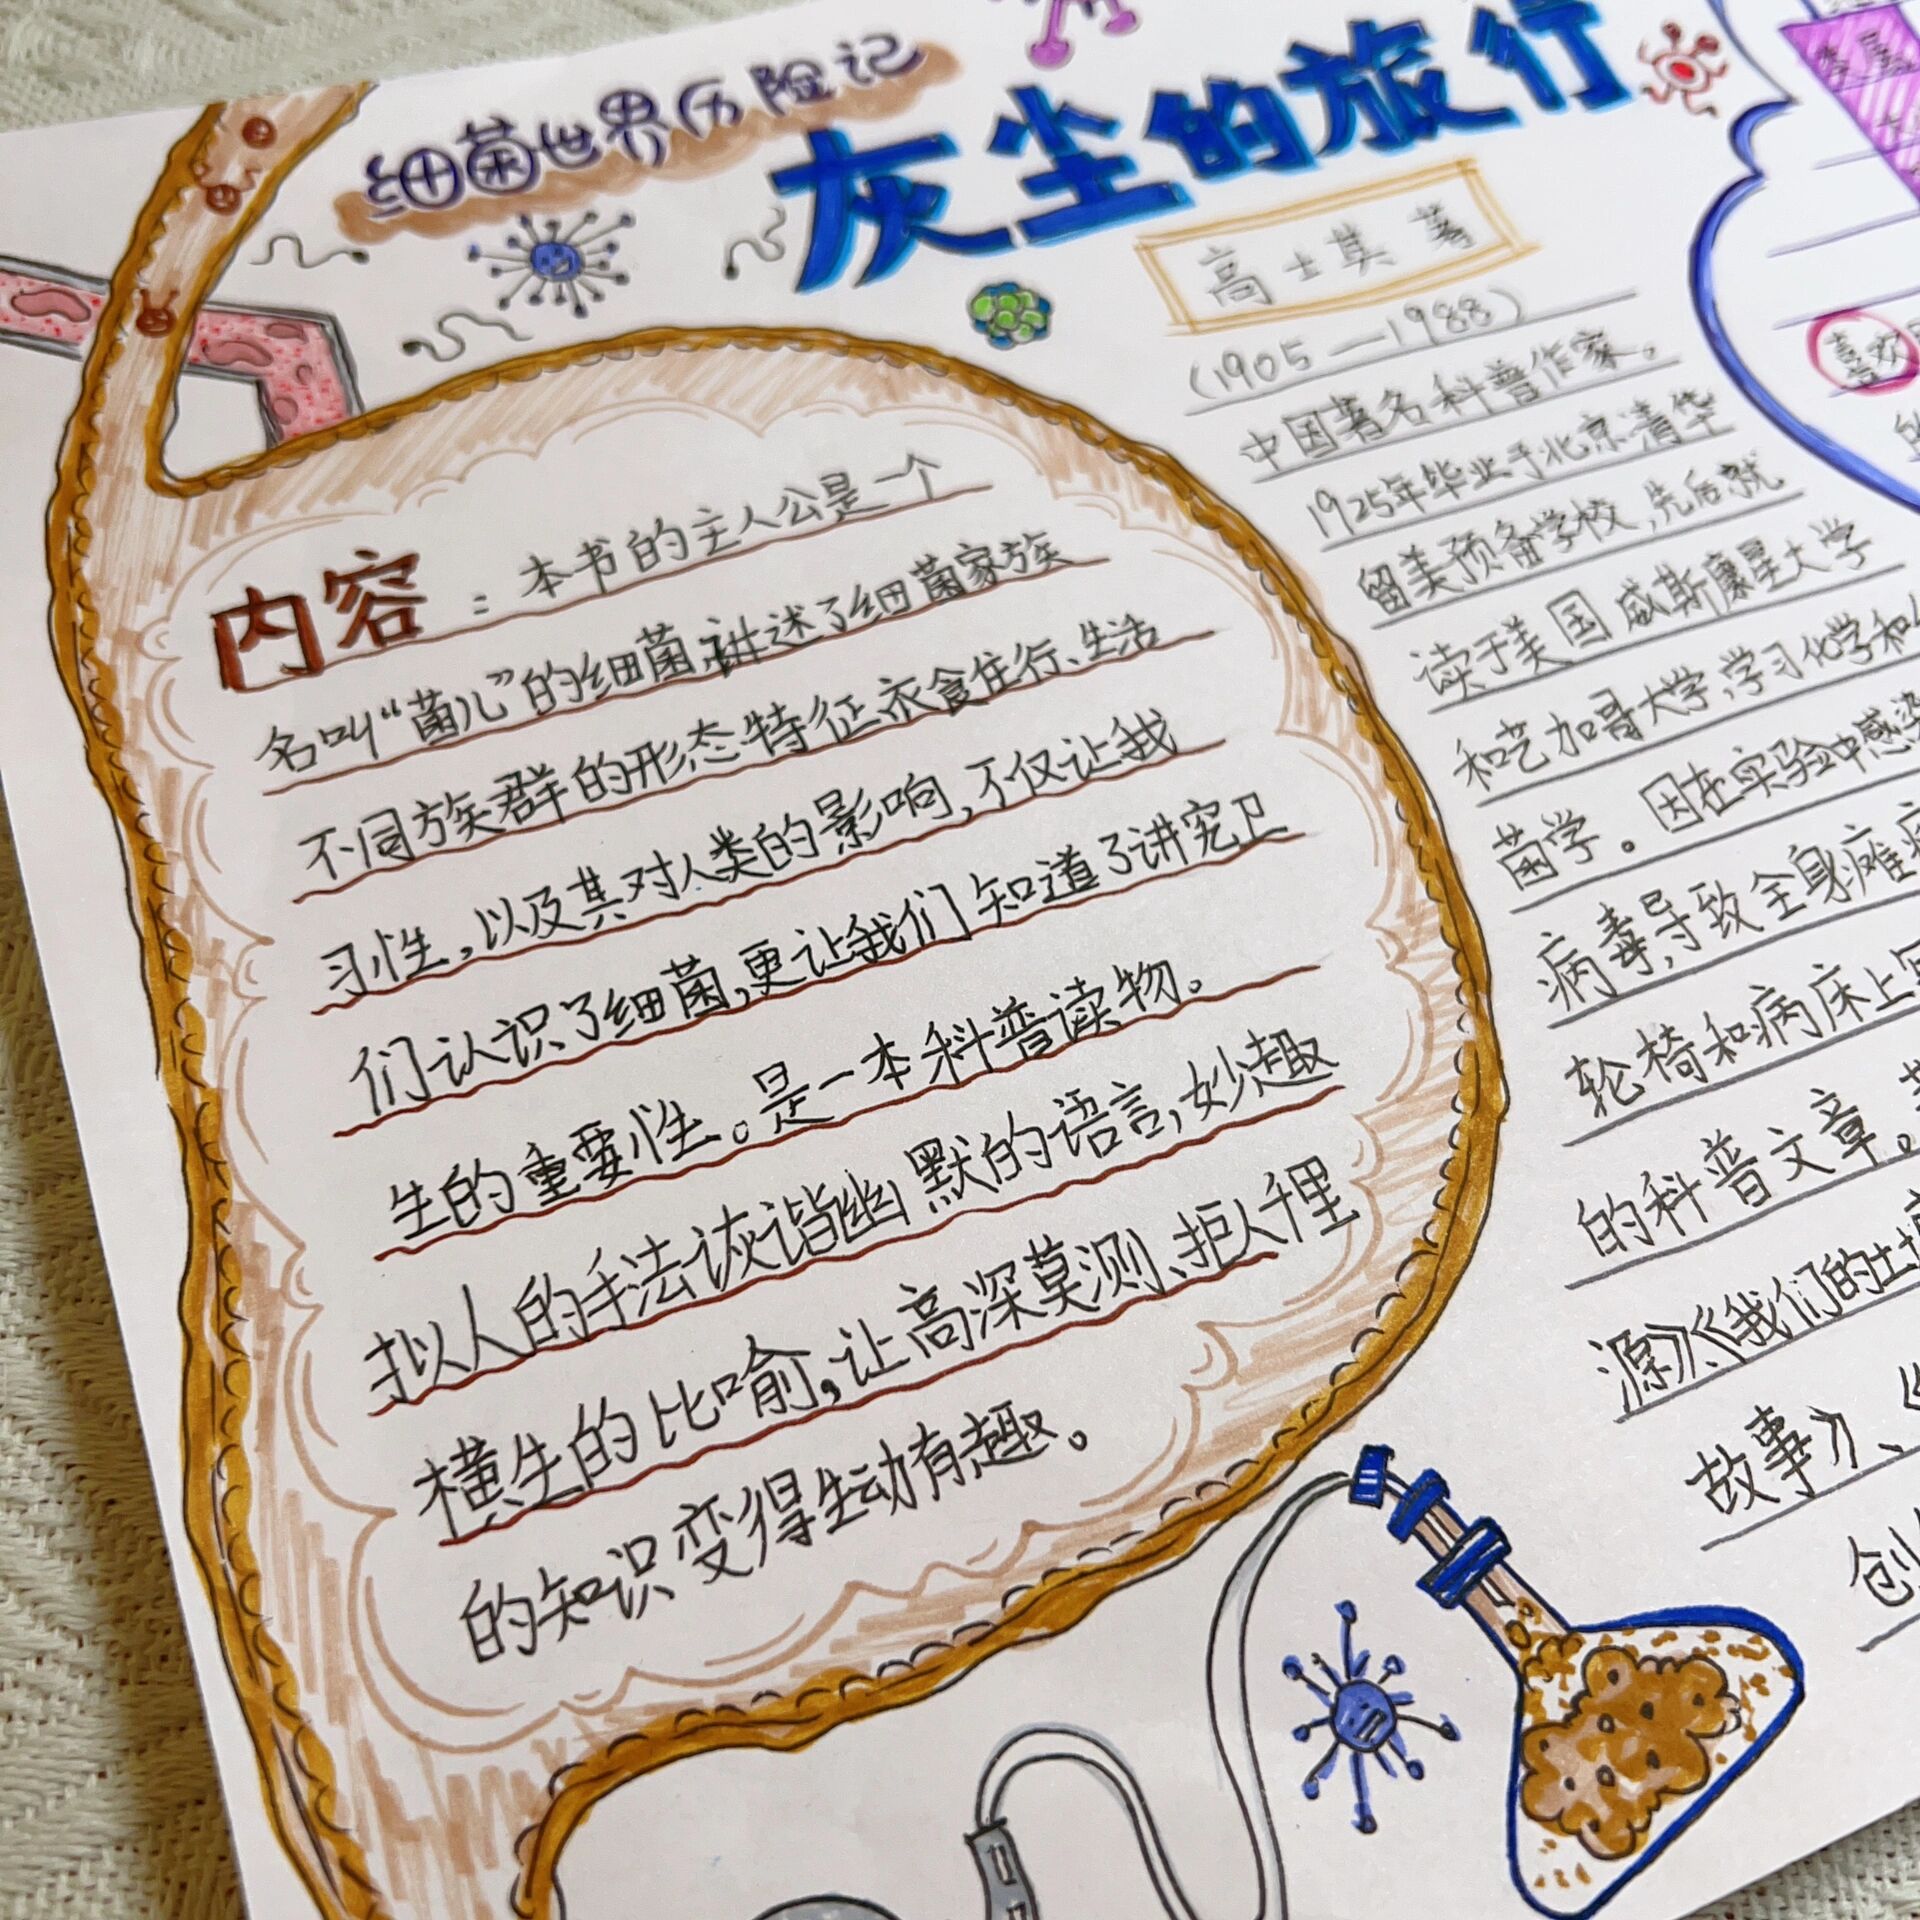 细菌世界历险记
灰尘的旅行
高士其 著
(1905—1988)
中国著名科普作家。
1925年毕业于北京清华
留美预备学校,先后就
读于美国威斯康星大学
和芝加哥大学,学习化学和
菌学。因在实验中感染
病毒,导致全身瘫
轮椅和病床上
的科普文章。
源》《我们的土
故事》、《
创
喜欢
内容:本书的主人公是一个
名叫“菌儿”的细菌,讲述了细菌家族
不同族群的形态特征、衣食住行、生活
习性,以及其对人类的影响,不仅让我
们认识了细菌,更让我们知道了讲究卫
生的重要性。是一本科普读物。
拟人的手法诙谐幽默的语言,妙趣
横生的比喻,让高深莫测、拒人千里
的知识变得生动有趣。